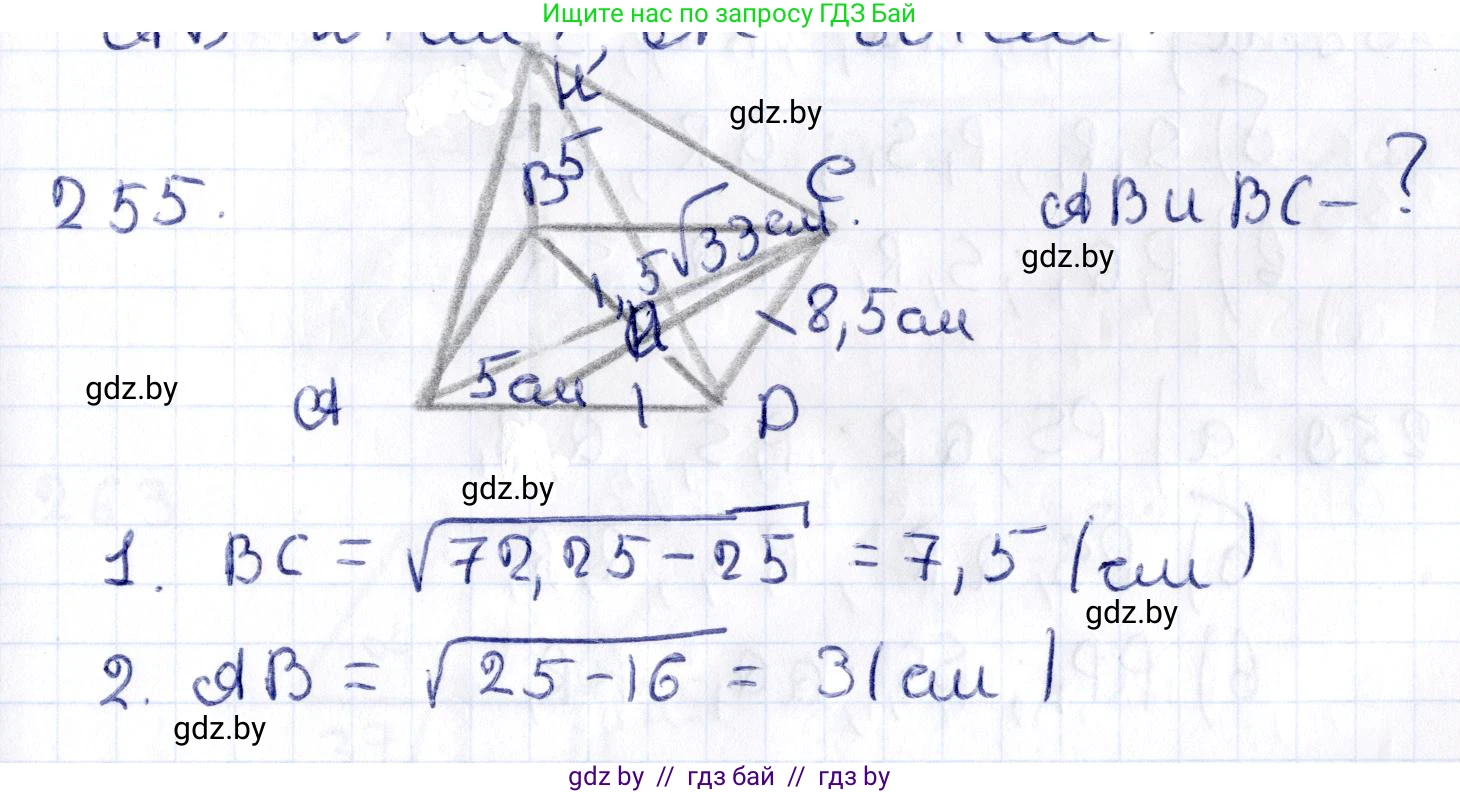 Ищите нас по запросу ГДЗ Бай
K
gdz.by
255.
B
5
C
AB и BC - ?
5√33 см.
gdz.by
8,5 см
gdz.by
A
5 см
D
gdz.by
1. BC = √72,25-25 = 7,5 (см)
gdz.by
2. AB = √25-16 = 3 (см)
gdz.by
gdz by // гдз бай // гдз by